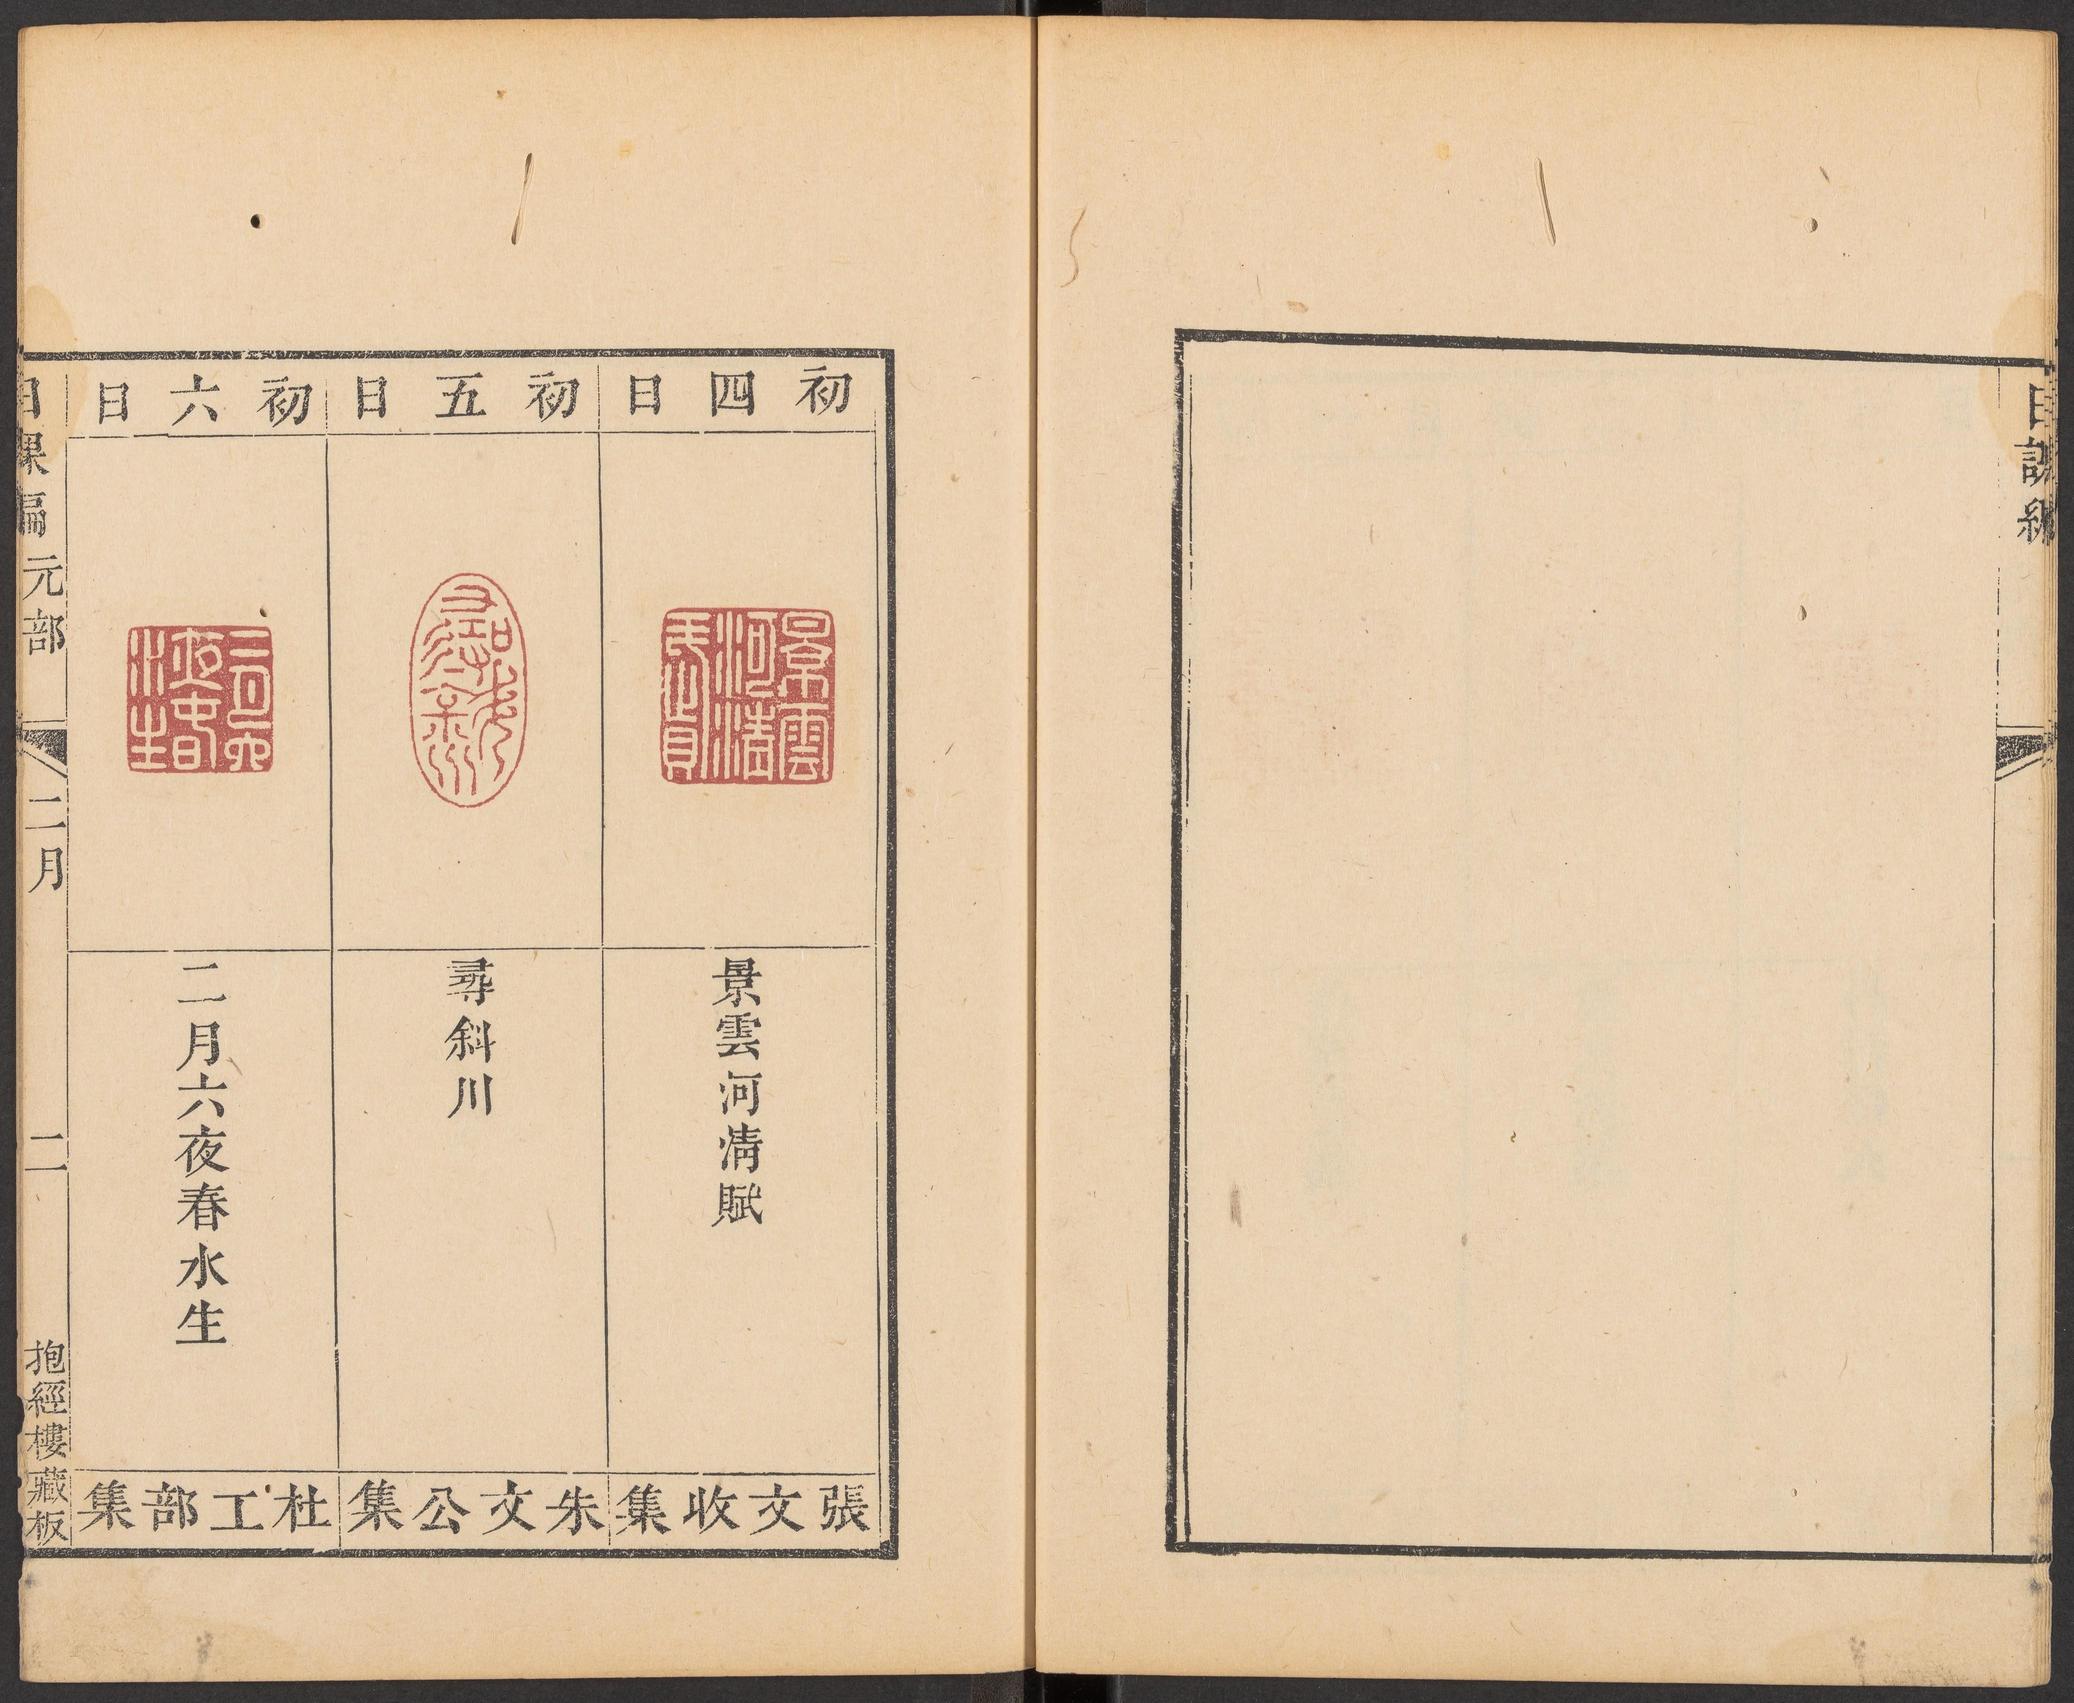 日課編
初四日
景雲河清賦
張文收集
初五日
尋斜川
朱文公集
初六日
二月六夜春水生
杜工部集
日課編元部
二月
二
抱經樓藏板